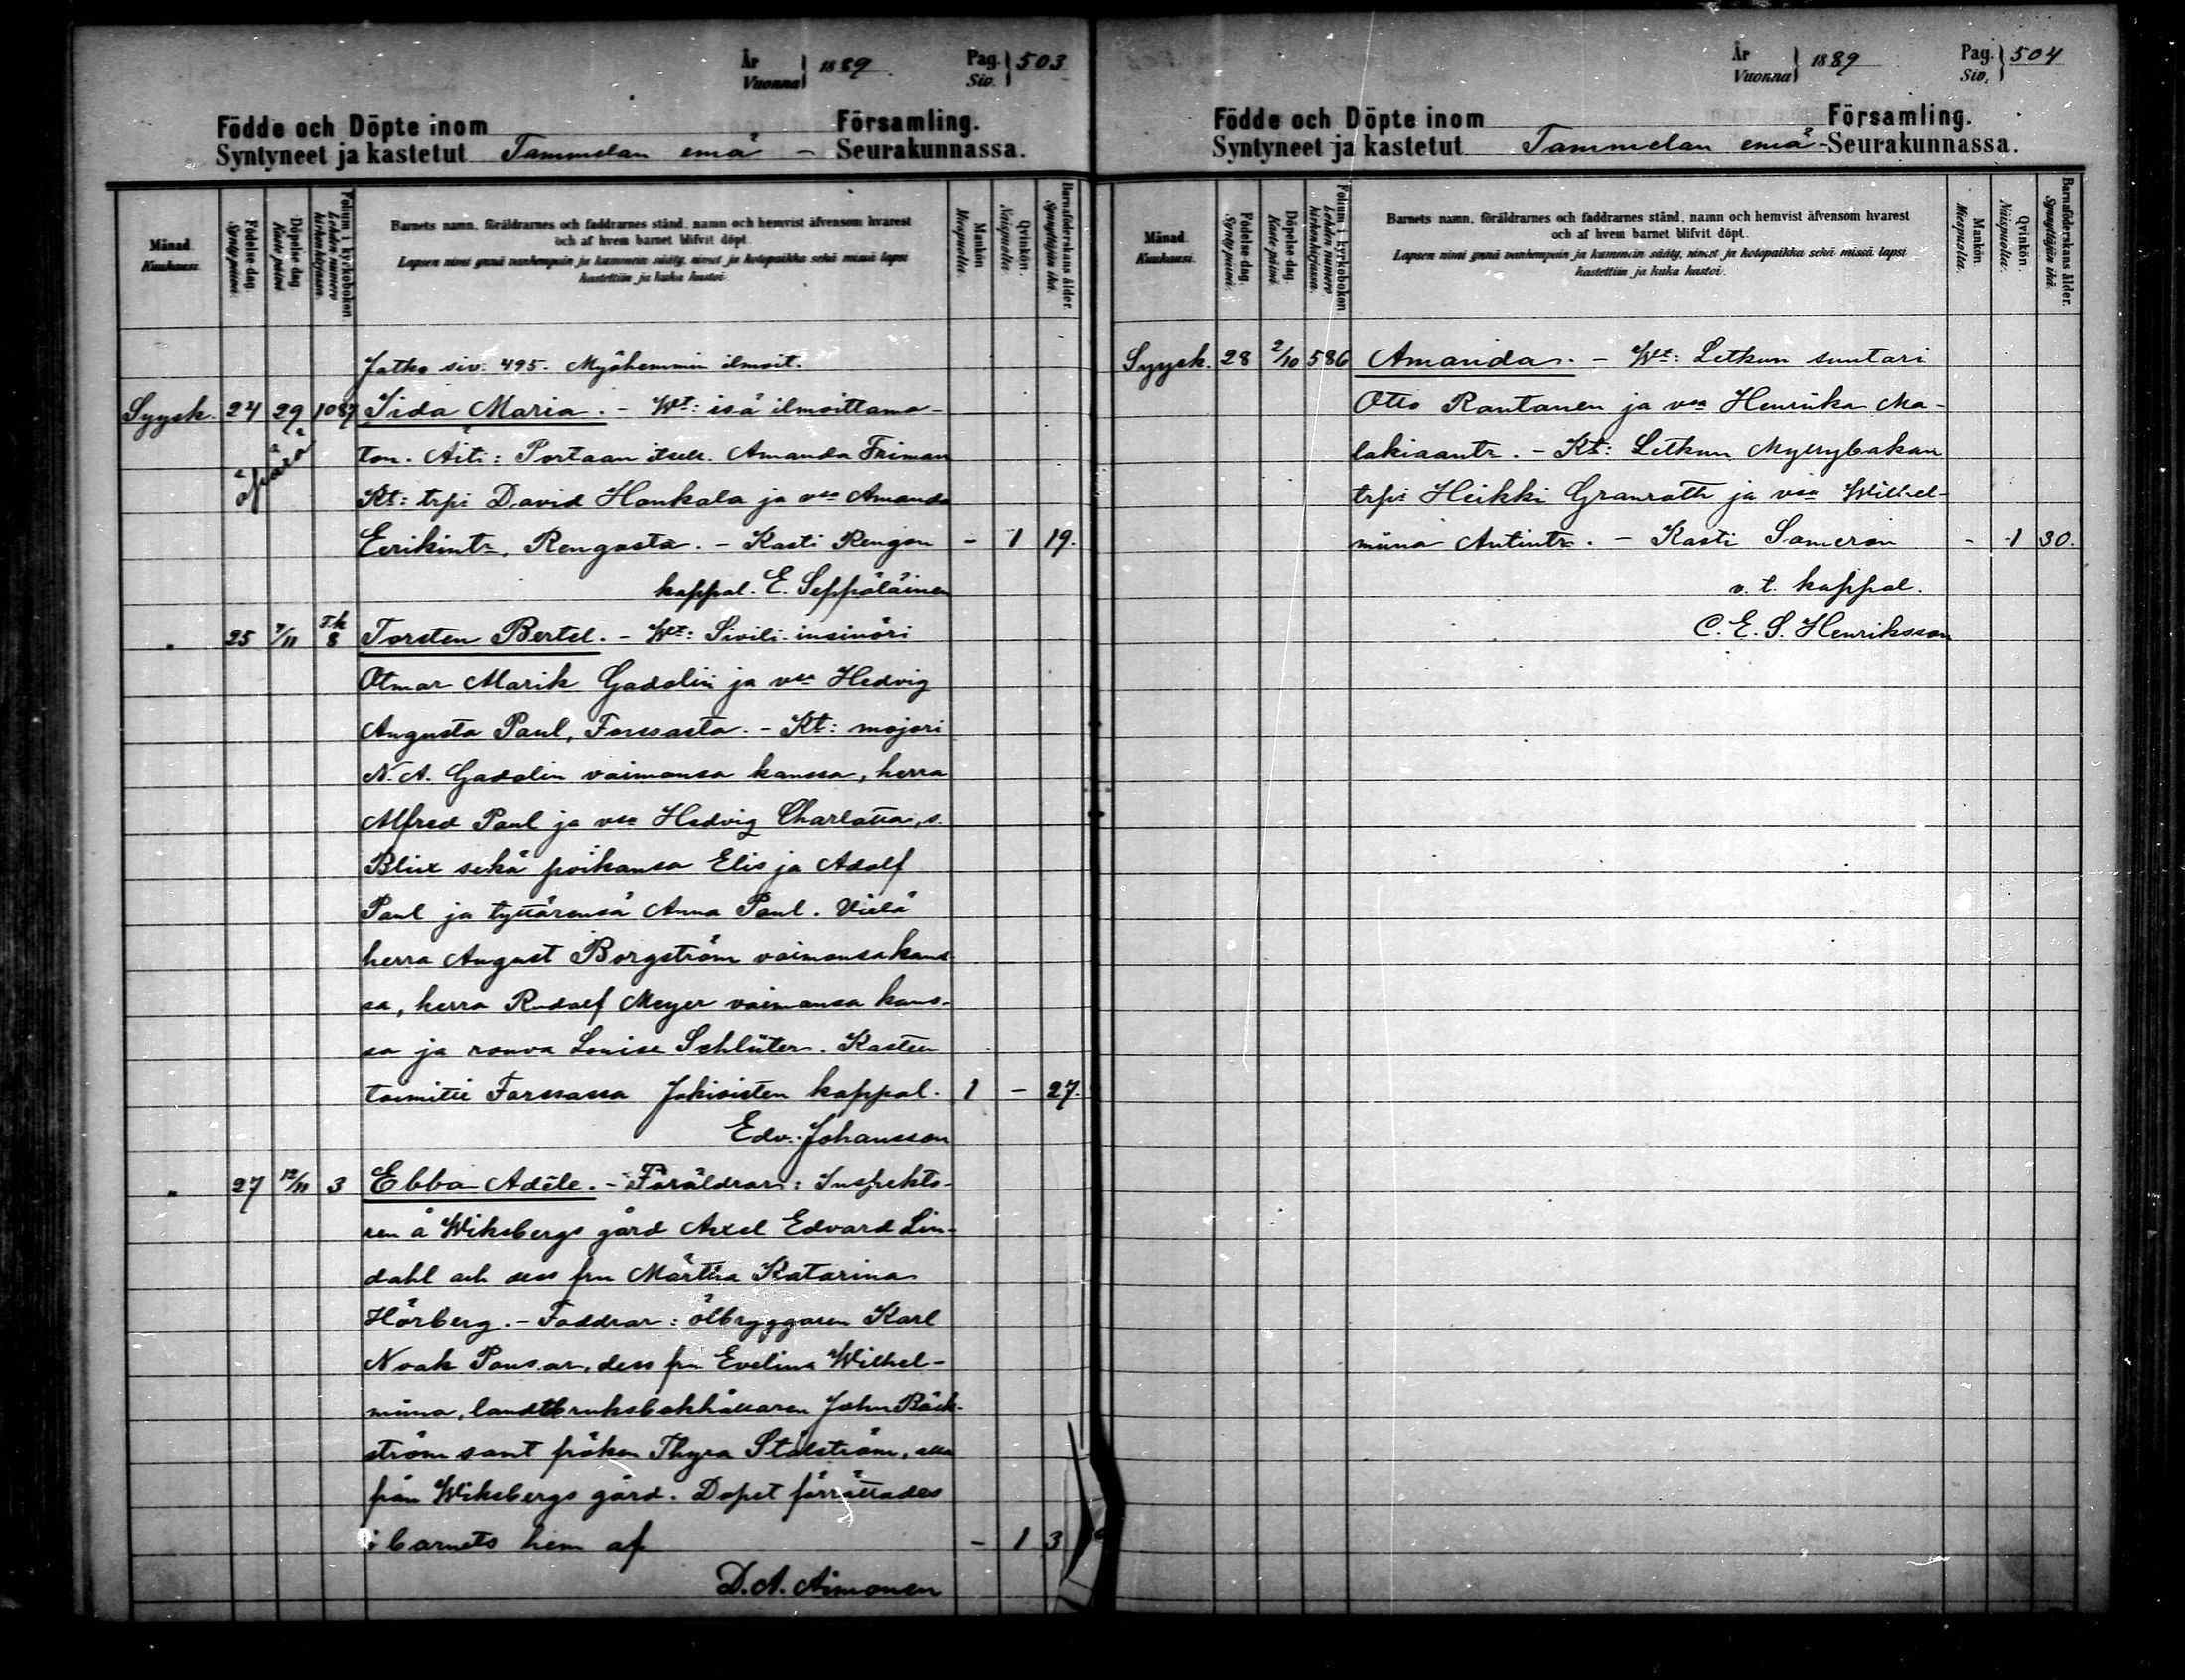 År
Vuonna 1889
Pag.
Siv. 503
Födde och Döpte inom Församling.
Syntyneet ja kastetut Tammelan emä - Seurakunnassa.
Månad. Kuukausi.
Födelse dag. Synty päivä.
Döpelse dag. Kaste päivä.
Folium i kyrkobokon. Lehden numero kirkonkirjassa.
Barnets namn, föräldrarnes och faddrarnes stånd, namn och hemvist äfvensom hvarest
och af hvem barnet blifvit döpt.
Lapsen nimi ynnä vanhempain ja kummein sääty, nimet ja kotopaikka sekä missä lapsi
kastettiin ja kuka kastoi.
Mankön. Miespuolta.
Qvinkön. Naispuolta.
Barnaföderskans ålder. Synnyttäjän ikä.
Jatko siv. 495. Myöhemmin ilmoit.
Syysk. 24 29 1087 Iida Maria. - Wt: isä ilmoittama-
äpärä ton. Äiti: Portaan itsell. Amanda Friman
Kt: trpr David Honkala ja vsa Amanda
Eerikintr. Rengosta. - Kasti Rengon - 1 19.
kappal. E. Seppäläinen
" 25 7/11 T.k 8 Torsten Bertel. - Wt: Sivili-insinöri
Otmar Marik Gadolin ja vsa Hedvig
Augusta Paul, Forssasta. - Kt: majori
N. A. Gadolin vaimonsa kanssa, herra
Alfred Paul ja vsa Hedvig Charlotta, s.
Blix sekä poikansa Elis ja Adolf
Paul ja tyttärensä Anna Paul. Vielä
herra August Borgström vaimonsa kans-
sa, herra Rudolf Meyer vaimonsa kans-
sa ja rouva Louise Schlüter. Kasteen
toimitti Forssassa Jokioisten kappal. 1 - 27.
Edv. Johansson
" 27 12/11 3 Ebba Adéle. - Föräldrar: Inspekto-
ren å Wiksbergs gård Axel Edvard Lin-
dahl och dess fru Märtha Katarina
Hörberg. - Faddrar: ölbryggaren Karl
Noak Pousar, dess fru Evelina Wilhel-
mina, landtbruksbokhållaren John Bäck-
ström samt fröken Thyra Stålström, alla
från Wiksbergs gård. Dopet förrättades
i barnets hem af - 1 3
D. A. Aimonen
År
Vuonna 1889
Pag.
Siv. 504
Födde och Döpte inom Församling.
Syntyneet ja kastetut Tammelan emä - Seurakunnassa.
Månad. Kuukausi.
Födelse dag. Synty päivä.
Döpelse dag. Kaste päivä.
Folium i kyrkobokon. Lehden numero kirkonkirjassa.
Barnets namn, föräldrarnes och faddrarnes stånd, namn och hemvist äfvensom hvarest
och af hvem barnet blifvit döpt.
Lapsen nimi ynnä vanhempain ja kummein sääty, nimet ja kotopaikka sekä missä lapsi
kastettiin ja kuka kastoi.
Mankön. Miespuolta.
Qvinkön. Naispuolta.
Barnaföderskans ålder. Synnyttäjän ikä.
Syysk. 28 2/10 586 Amanda. - Wt: Letkun suutari
Otto Rantanen ja vsa Henrika Ma-
lakiaantr. - Kt: Letkun Myllybakan
trpr Heikki Granroth ja vsa Wilhel-
miina Antintr. - Kasti Someron - 1 30.
v. t. kappal.
C. E. S. Henriksson